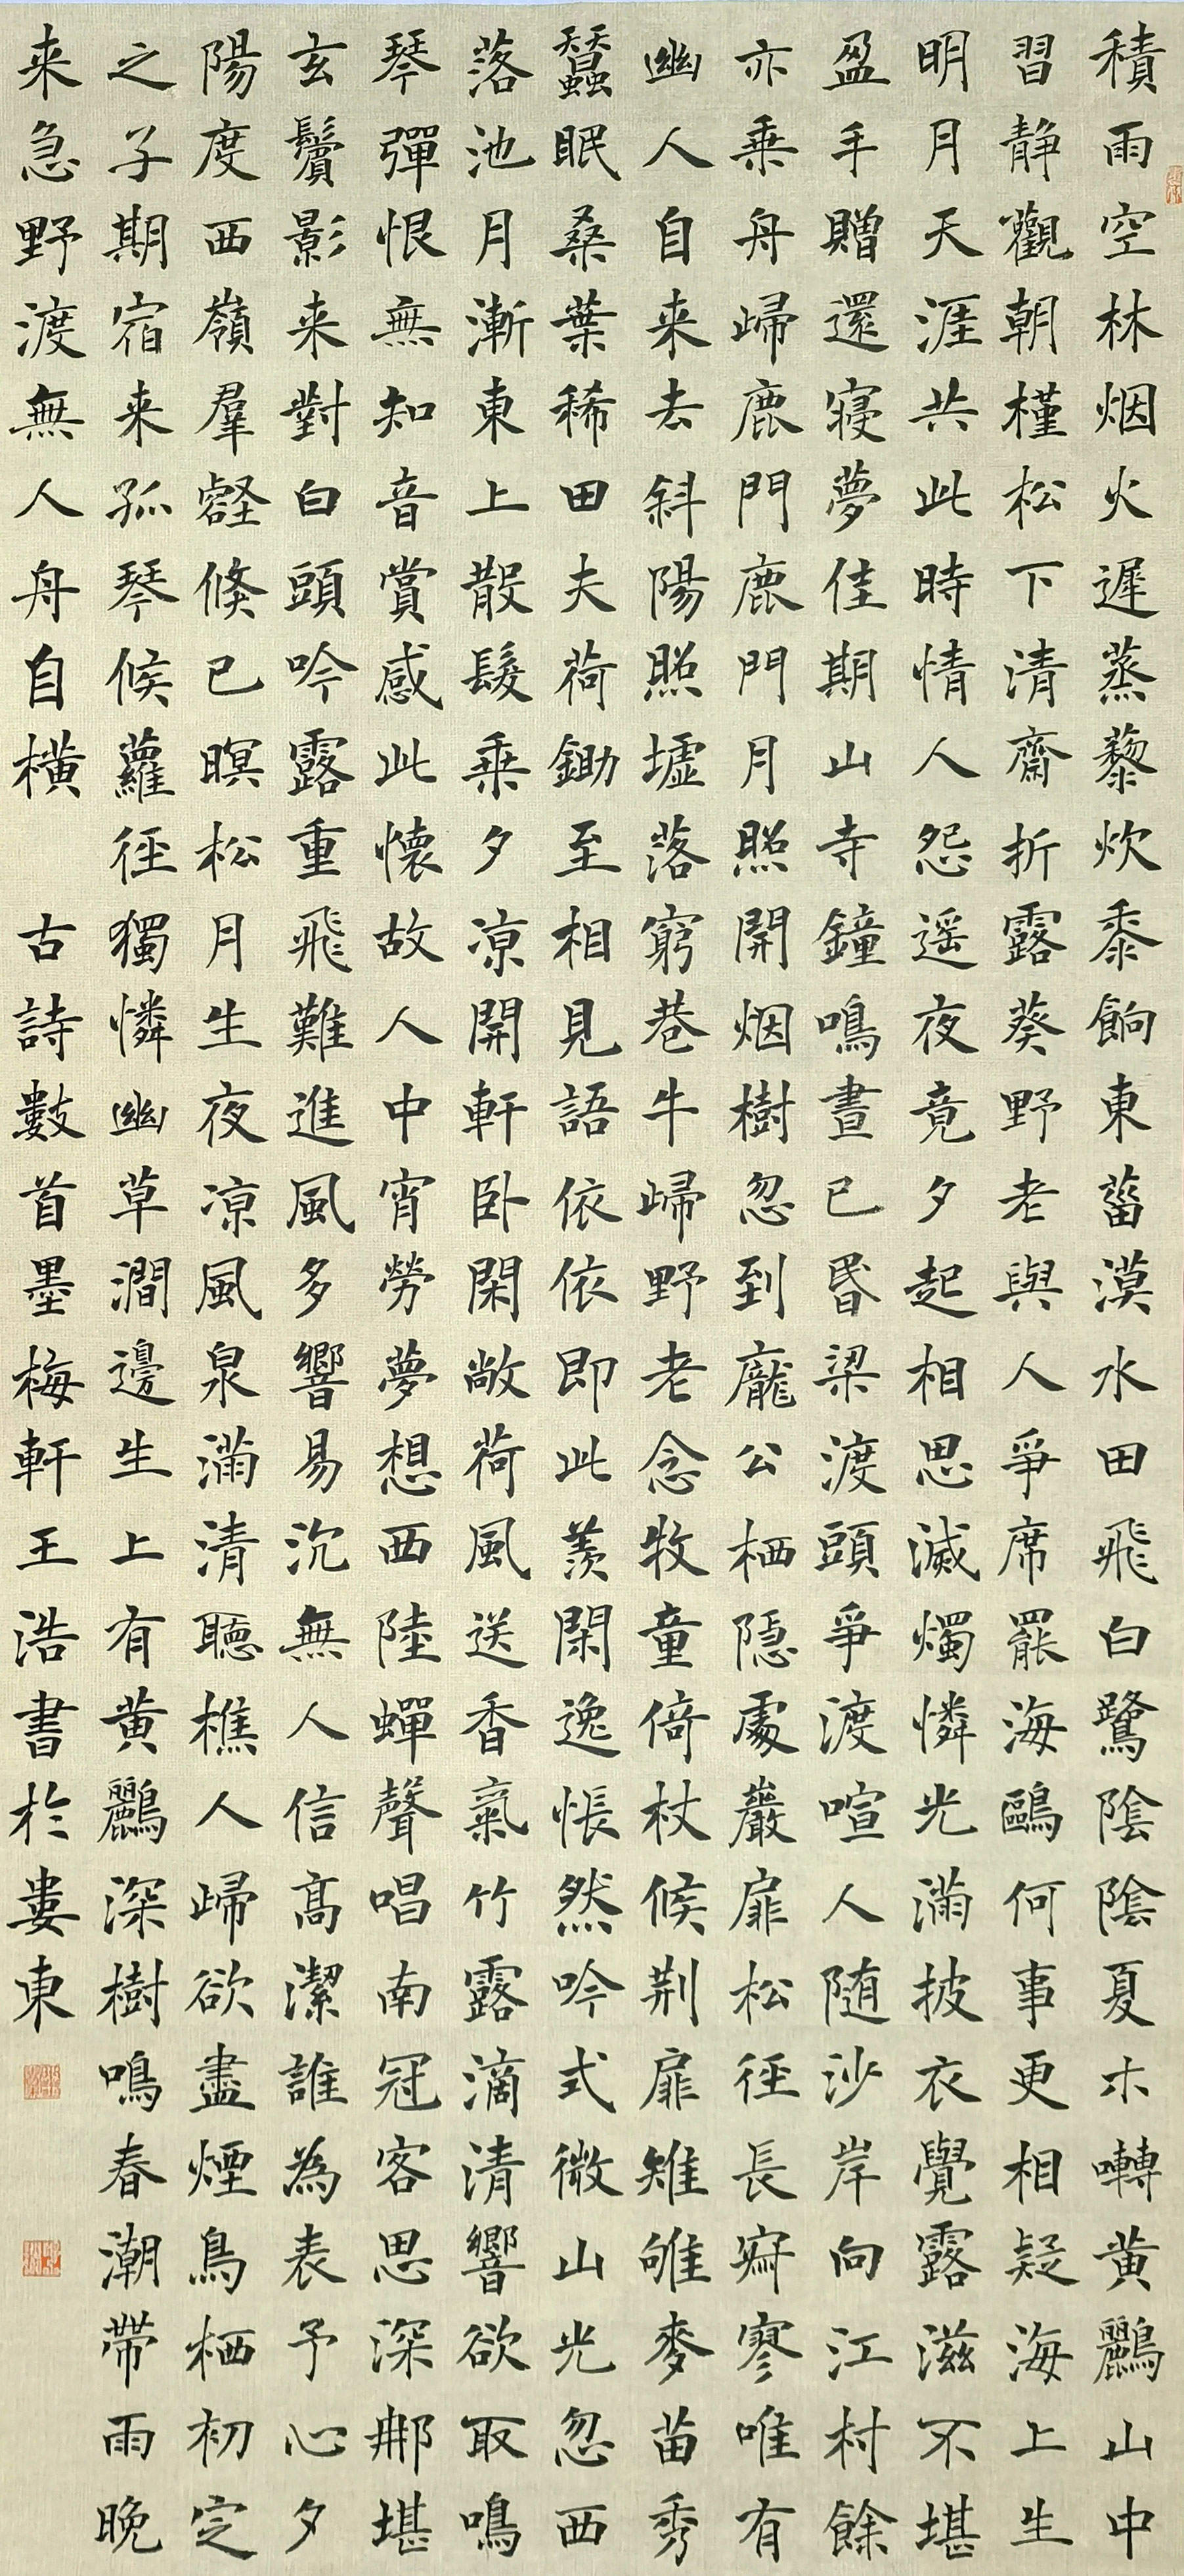 積雨空林烟火遲蒸藜炊黍餉東菑漠水田飛白鷺陰陰夏木囀黄鸝山中
習静觀朝槿松下清齋折露葵野老與人爭席罷海鷗何事更相疑海上生
明月天涯共此時情人怨遥夜竟夕起相思滅燭憐光滿披衣覺露滋不堪
盈手贈還寝夢佳期山寺鐘鳴晝已昏梁渡頭爭渡喧人随沙岸向江村餘
亦乗舟歸鹿門鹿門月照開烟樹忽到龐公栖隠處巖扉松徑長寂寥唯有
幽人自来去斜陽照墟落窮巷牛歸野老念牧童倚杖候荆扉雉雊麥苗秀
蠶眠桑葉稀田夫荷鋤至相見語依依即此羨閑逸悵然吟式微山光忽西
落池月漸東上散髮乗夕凉開軒卧閑敞荷風送香氣竹露滴清響欲取鳴
琴彈恨無知音賞感此懷故人中宵勞夢想西陸蟬聲唱南冠客思深那堪
玄鬢影来對白頭吟露重飛難進風多響易沉無人信高潔誰為表予心夕
陽度西嶺羣壑倏已暝松月生夜凉風泉滿清聽樵人歸欲盡煙鳥栖初定
之子期宿来孤琴候蘿徑獨憐幽草澗邊生上有黄鸝深樹鳴春潮帶雨晚
来急野渡無人舟自横 古詩數首墨梅軒王浩書於婁東